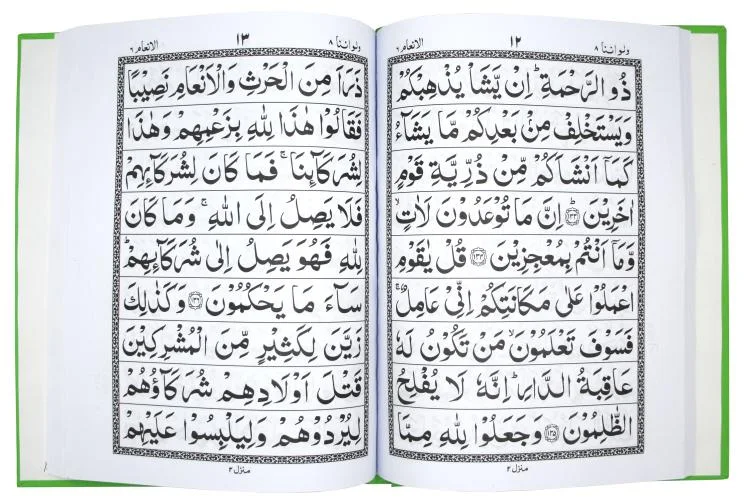 ولواننا ٨
١٢
الانعام ٦
ذُو الرَّحْمَةِ ؕ اِنْ يَّشَاْ يُذْهِبْكُمْ
وَيَسْتَخْلِفْ مِنْۢ بَعْدِكُمْ مَّا يَشَآءُ
كَمَاۤ اَنْشَاَكُمْ مِّنْ ذُرِّيَّةِ قَوْمٍ
اٰخَرِيْنَ ؕ ﴿١٣٣﴾ اِنَّ مَا تُوْعَدُوْنَ لَاٰتٍ ۙ
وَّمَاۤ اَنْتُمْ بِمُعْجِزِيْنَ ﴿١٣٤﴾ قُلْ يٰقَوْمِ
اعْمَلُوْا عَلٰى مَكَانَتِكُمْ اِنِّيْ عَامِلٌ ۚ
فَسَوْفَ تَعْلَمُوْنَ ۙ مَنْ تَكُوْنُ لَهٗ
عَاقِبَةُ الدَّارِ ؕ اِنَّهٗ لَا يُفْلِحُ
الظّٰلِمُوْنَ ﴿١٣٥﴾ وَجَعَلُوْا لِلّٰهِ مِمَّا
منزل ٢
ولواننا ٨
١٣
الانعام ٦
ذَرَاَ مِنَ الْحَرْثِ وَالْاَنْعَامِ نَصِيْبًا
فَقَالُوْا هٰذَا لِلّٰهِ بِزَعْمِهِمْ وَهٰذَا
لِشُرَكَآئِنَا ۚ فَمَا كَانَ لِشُرَكَآئِهِمْ
فَلَا يَصِلُ اِلَى اللّٰهِ ۚ وَمَا كَانَ
لِلّٰهِ فَهُوَ يَصِلُ اِلٰى شُرَكَآئِهِمْ ؕ
سَآءَ مَا يَحْكُمُوْنَ ﴿١٣٦﴾ وَكَذٰلِكَ
زَيَّنَ لِكَثِيْرٍ مِّنَ الْمُشْرِكِيْنَ
قَتْلَ اَوْلَادِهِمْ شُرَكَآؤُهُمْ
لِيُرْدُوْهُمْ وَلِيَلْبِسُوْا عَلَيْهِمْ
منزل ٢